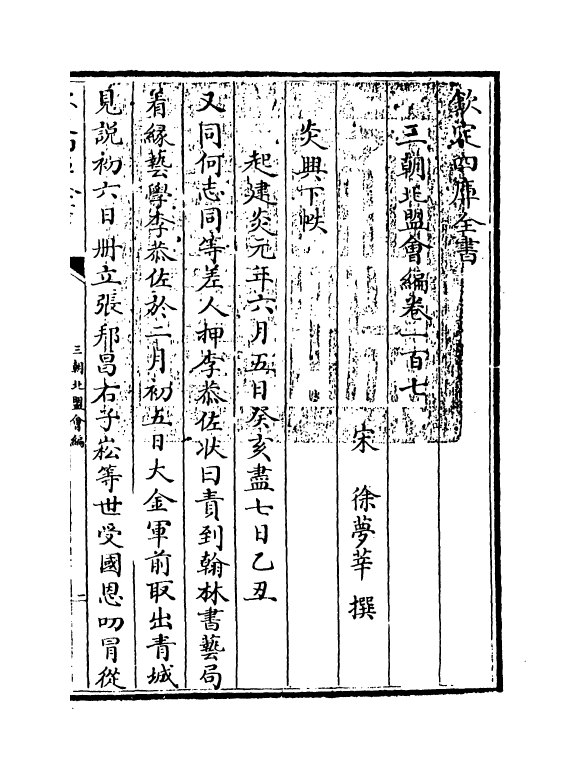 欽定四庫全書
三朝北盟會編卷一百七
宋 徐夢莘 撰
炎興下帙
起建炎元年六月五日癸亥盡七日乙丑
又同何志同等差人押李恭佐狀曰責到翰林書藝局
看縁藝學李恭佐於二月初五日大金軍前取出青城
見說初六日冊立張邦昌右子崧等世受國恩叨冒從
三朝北盟會編